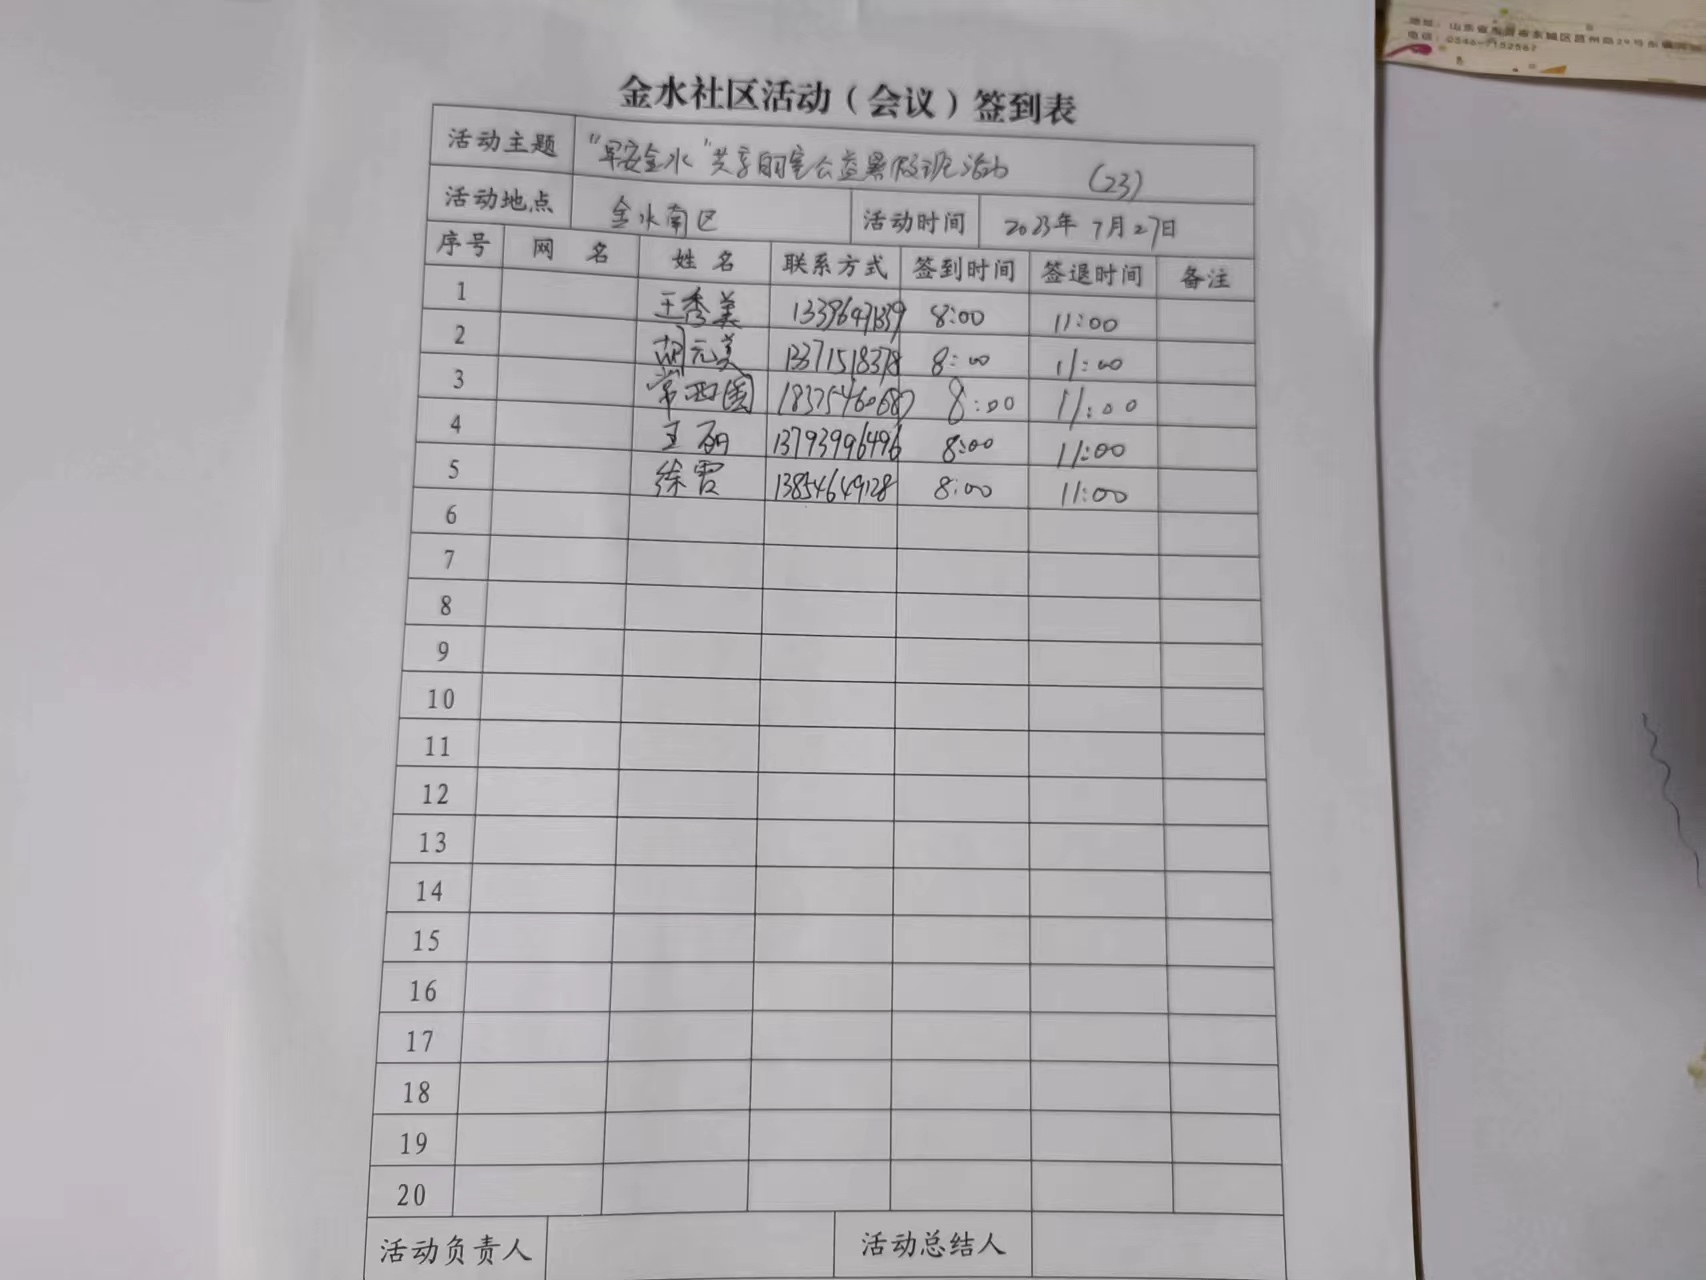 地址：山东省东营市东城区莒州路29号东
电话：0546-7152567
金水社区活动（会议）签到表
活动主题 "早安金水"共享自习室公益暑假班活动 (23)
活动地点 金水南区 活动时间 2023年7月27日
序号 网 名 姓 名 联系方式 签到时间 签退时间 备注
1 王秀美 8:00 11:00
2 胡元美 13371518378 8:00 11:00
3 常西国 8:00 11:00
4 王丽 13793996496 8:00 11:00
5 徐霞 13854649128 8:00 11:00
6
7
8
9
10
11
12
13
14
15
16
17
18
19
20
活动负责人 活动总结人